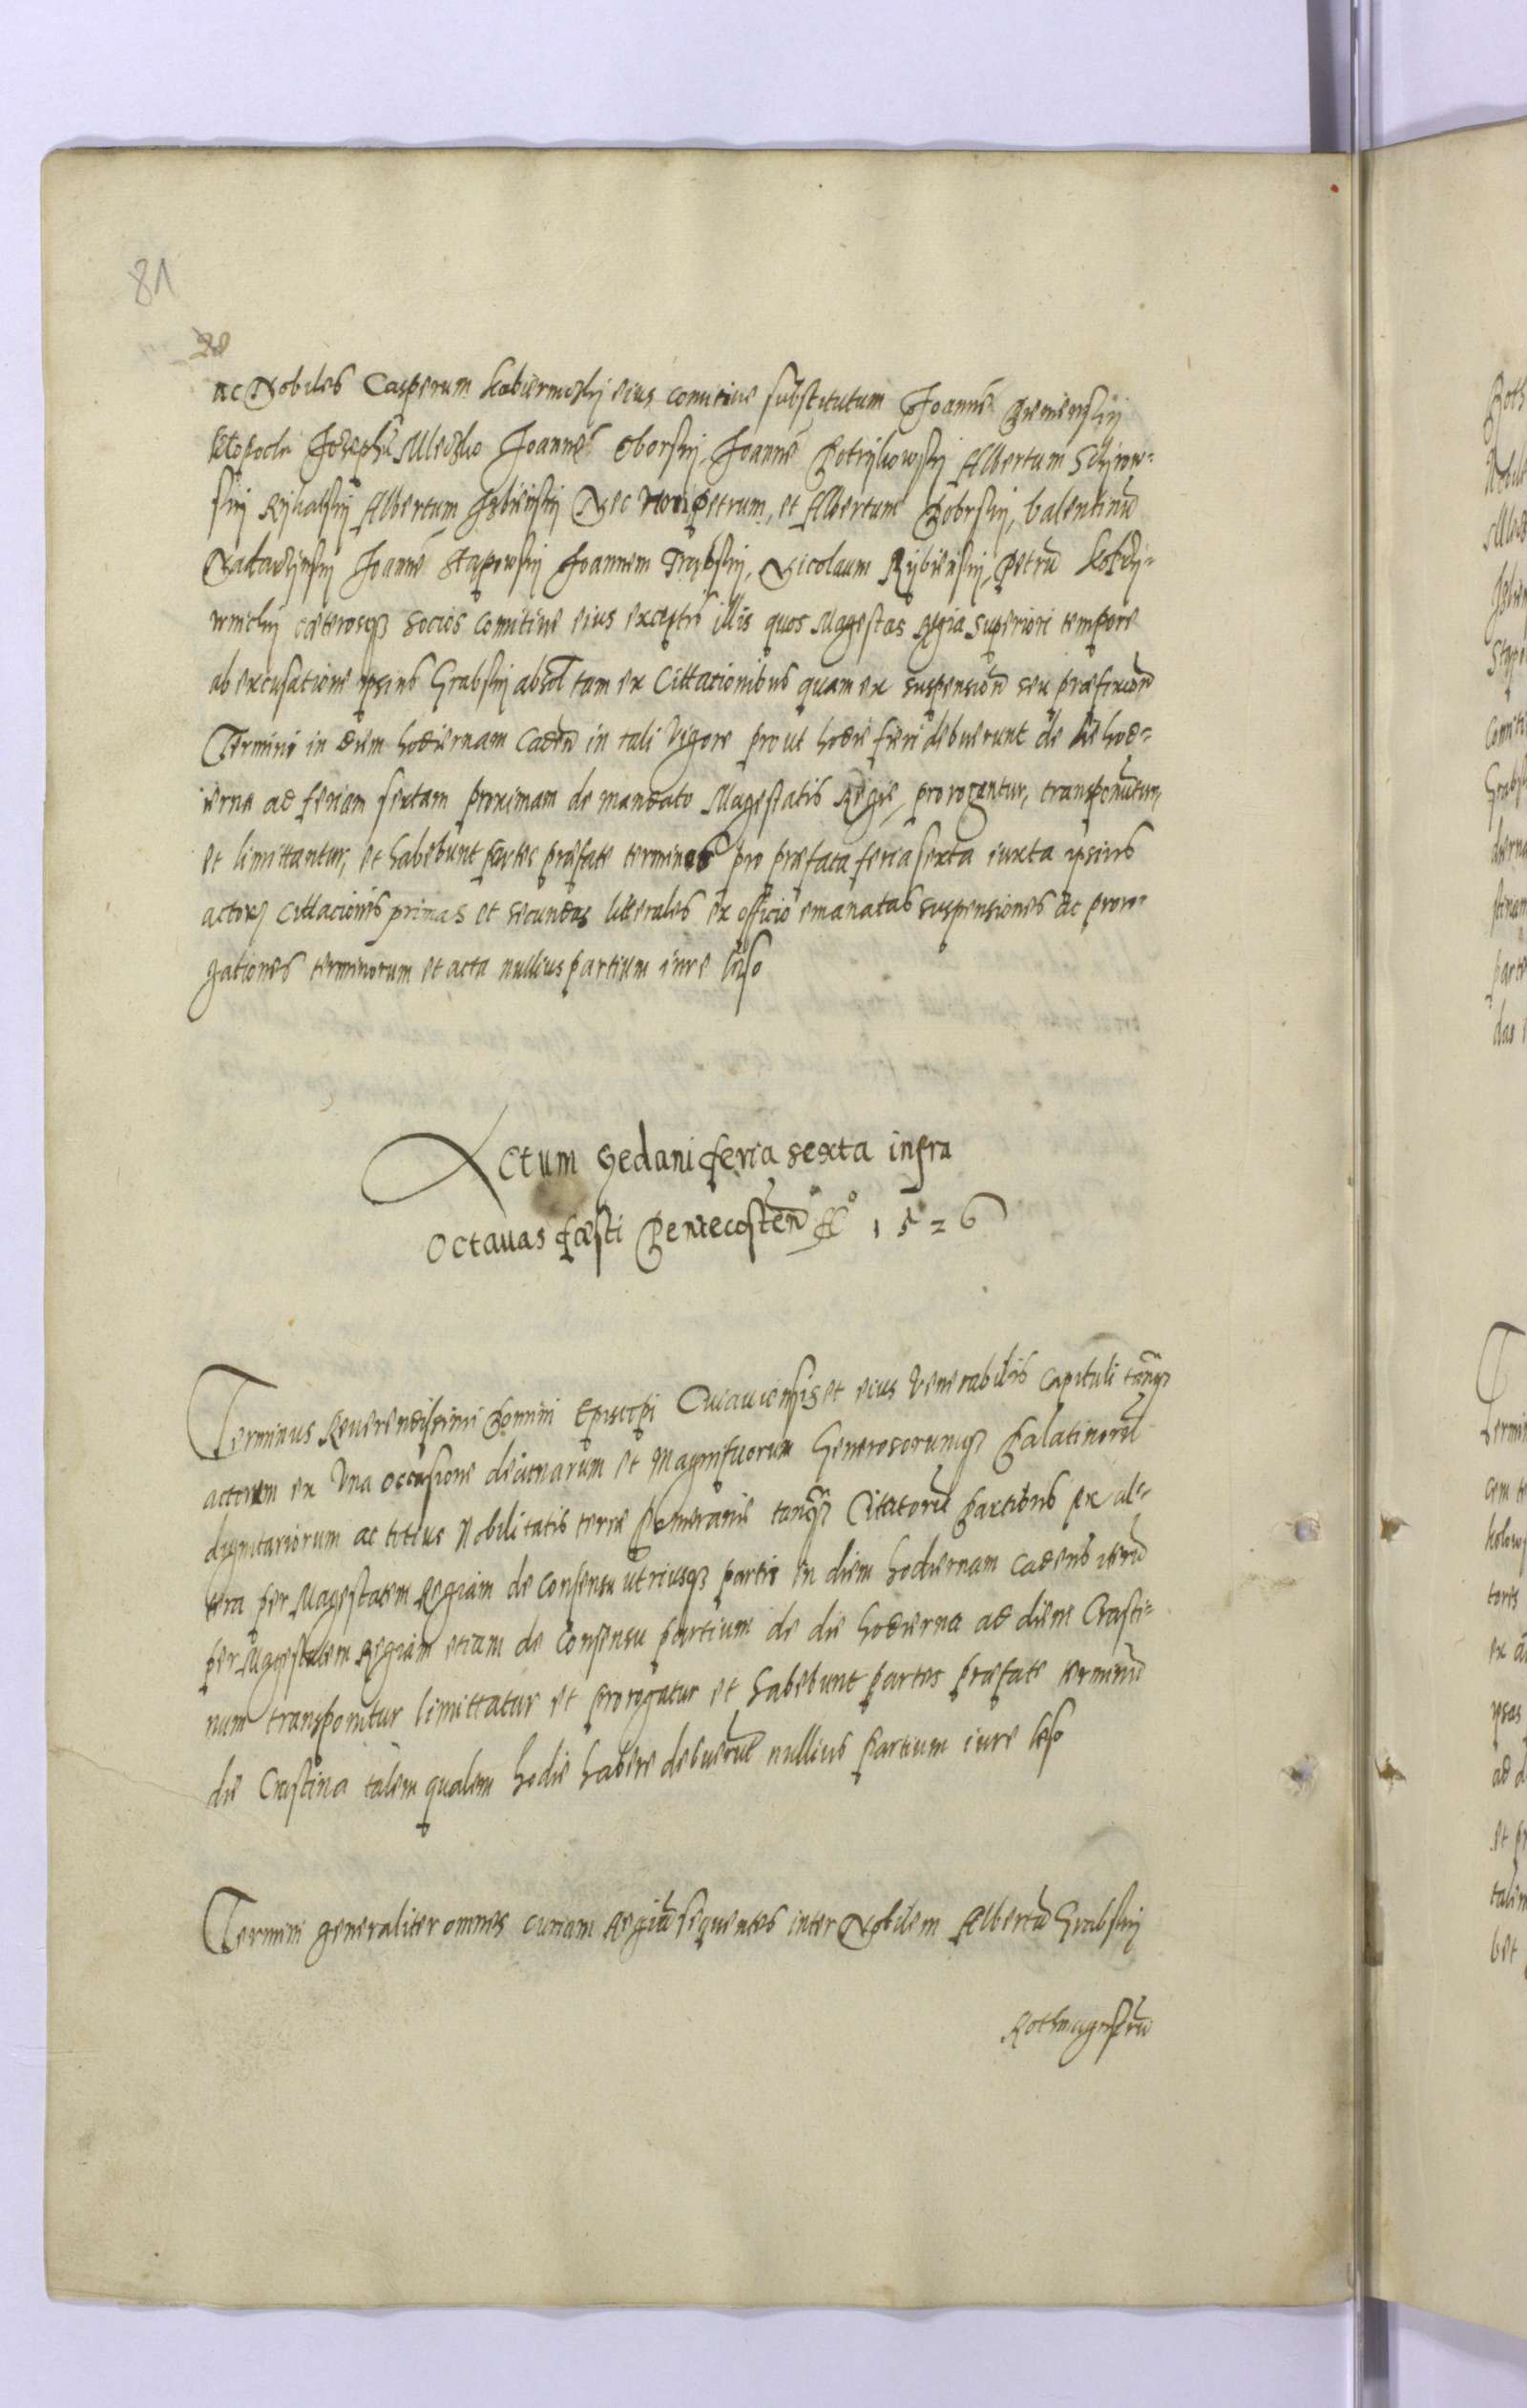 81
28
ac Nobiles Casperum Kobiernickij eius comitive substitutum Joannē Zieniensskij
Klopocki Josephū Mleczko Joannē Oborskij, Joannē Potrijkowskij Albertum Schijrow-
skij Rijkalskij Albertum Jzbienskij Nec non petrum, et Albertum Dobrskij, Valentinū
Nadarzijnskij Joannē Stapowskij Joannem Trzijbskij, Nicolaum Rijbienskij, Petrū
winckij cæterosqȝ socios comitive eius exceptis illis quos Magestas Regia superiori tempore
ab excusatione ipsius Grabskij absol tam ex Cittationibus quam ex suspensioñ seu præfixioñ
Termini in diem hodiernam Cadeñ in tali vigore prout hodie fieri debuerunt de die hod-
ierna ad feriam sextam proximam de mandato Magestatis Regie prorogantur, transponūtur,
et limittantur, et habebunt partes præfate terminos pro præfata feria sexta iuxta ipsius
actorȝ Cittaciones primas et secundas litterales ex officio emanatas suspensiones ac proro-
gationes terminorum et acta nullius partium iure læso
Actum Gedani feria sexta infra
octavas fæsti Pentecosteñ Aº 1526
Terminus Reverendissimi Domini Episcopi Cuiaviensis et eius Venerabilis Capituli tanqȝ
actorum ex Una occasione decimarum et Magnificorum Generosorumqȝ Palatinorū
dignitariorum ac totius Nobilitatis terræ Pomeranie tanqȝ Citatorū Partibus ex al-
tera per Magestatem Regiam de Consensu utriusqȝ partis in diem hodiernam Cadens iterū
per Magestatem Regiam etiam de Consensu partium de die hodierna ad diem Crasti-
num transponitur limittatur et prorogatur et habebunt partes præfate terminū
die Crastina talem qualem hodie habere debuerūt nullius Partium iure læso
Termini generaliter omnes curiam Regiā sequentes inter Nobilem Albertū Grabskij
Rothmagistrū